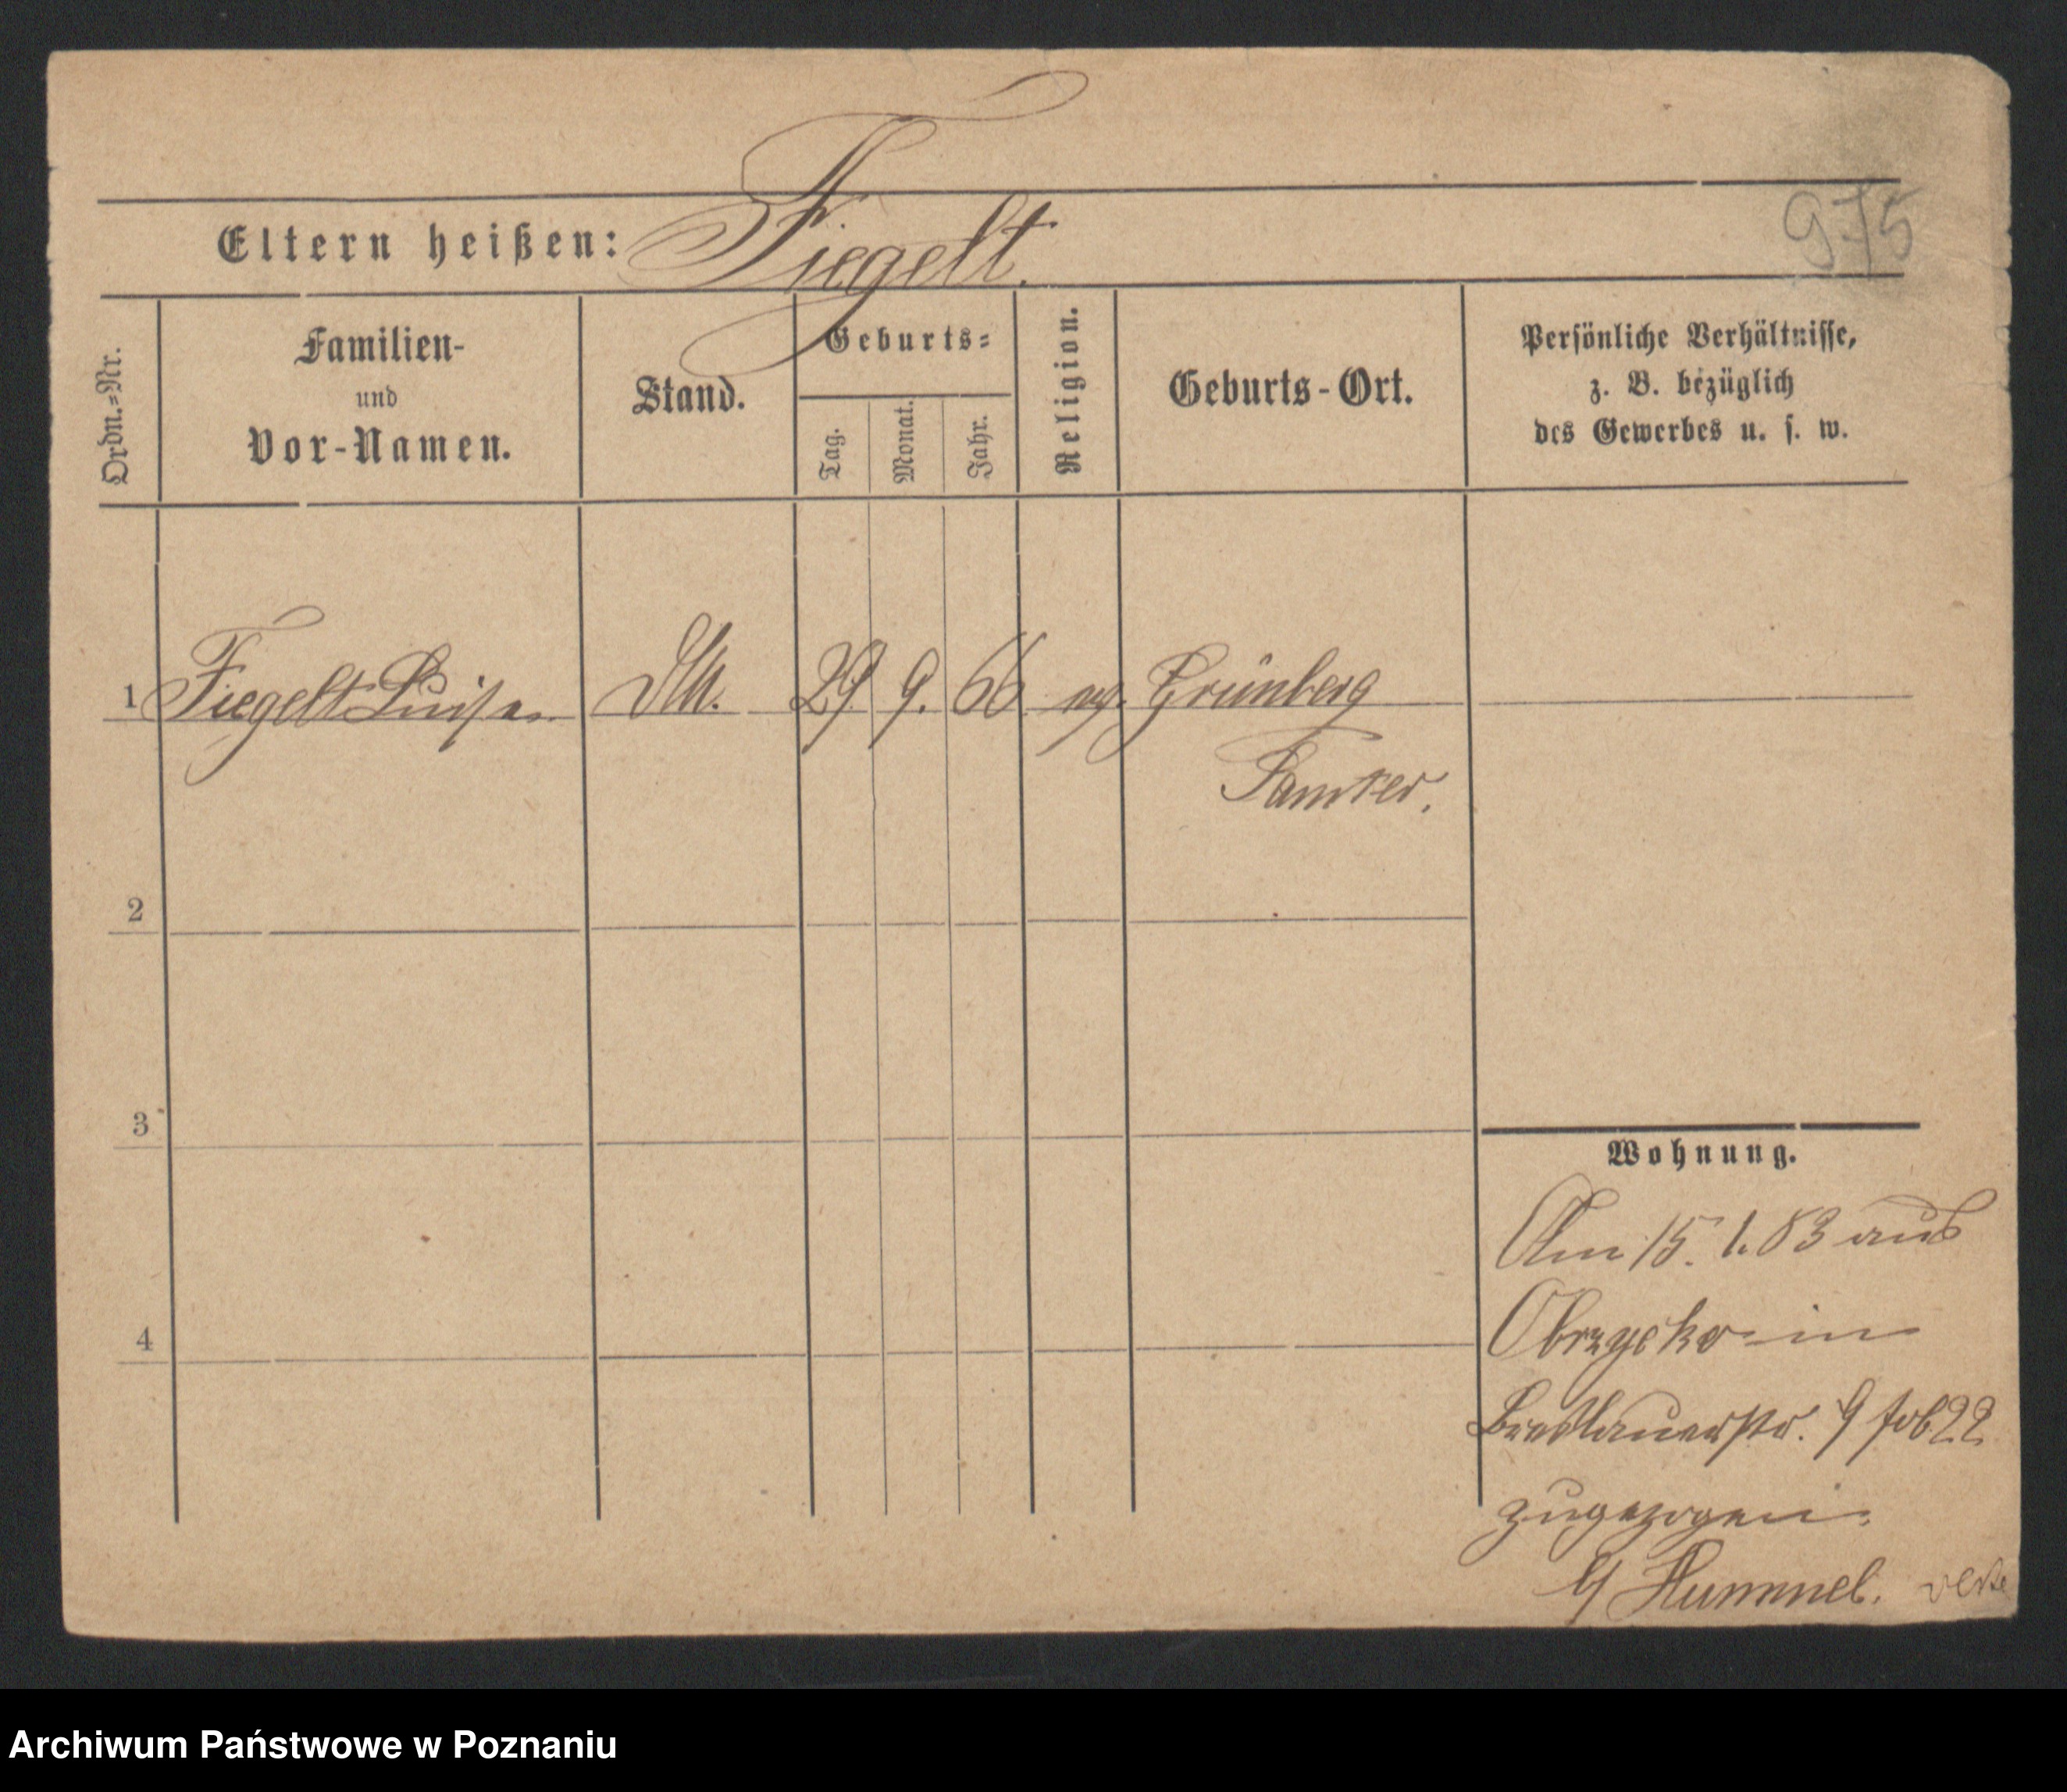 Eltern heißen: Fiegelt.
975
Ordn.=Nr.
Familien-
und
Vor-Namen.
Stand.
Geburts=
Tag.
Monat.
Jahr.
Religion.
Geburts-Ort.
Persönliche Verhältnisse,
z. B. bezüglich
des Gewerbes u. s. w.
1 Fiegelt Luise 29 9. 66 Grünberg
Samter.
2
3
Wohnung.
Am 15. 1. 83 aus
Obrzycko in
4
Breslauerstr. 9 22
zugezogen.
b/ Hummel.
Archiwum Państwowe w Poznaniu